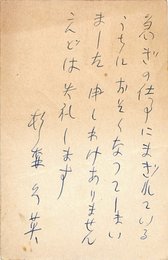 急ぎの仕事にまぎれている
うちに おそくなってしまい
ました 申しわけありません
こんどは失礼します